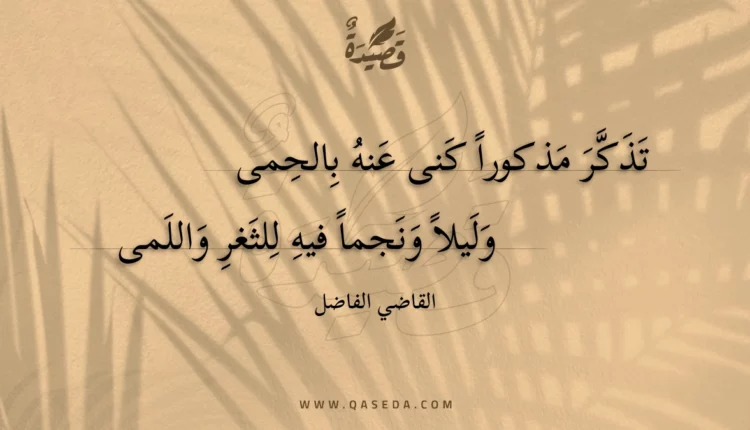 قَصِيْدَةٌ
تَذَكَّرَ مَذكوراً كَنى عَنهُ بِالحِمى
وَلَيلاً وَنَجماً فيهِ لِلثَغرِ وَاللَمى
القاضي الفاضل
WWW.QASEDA.COM